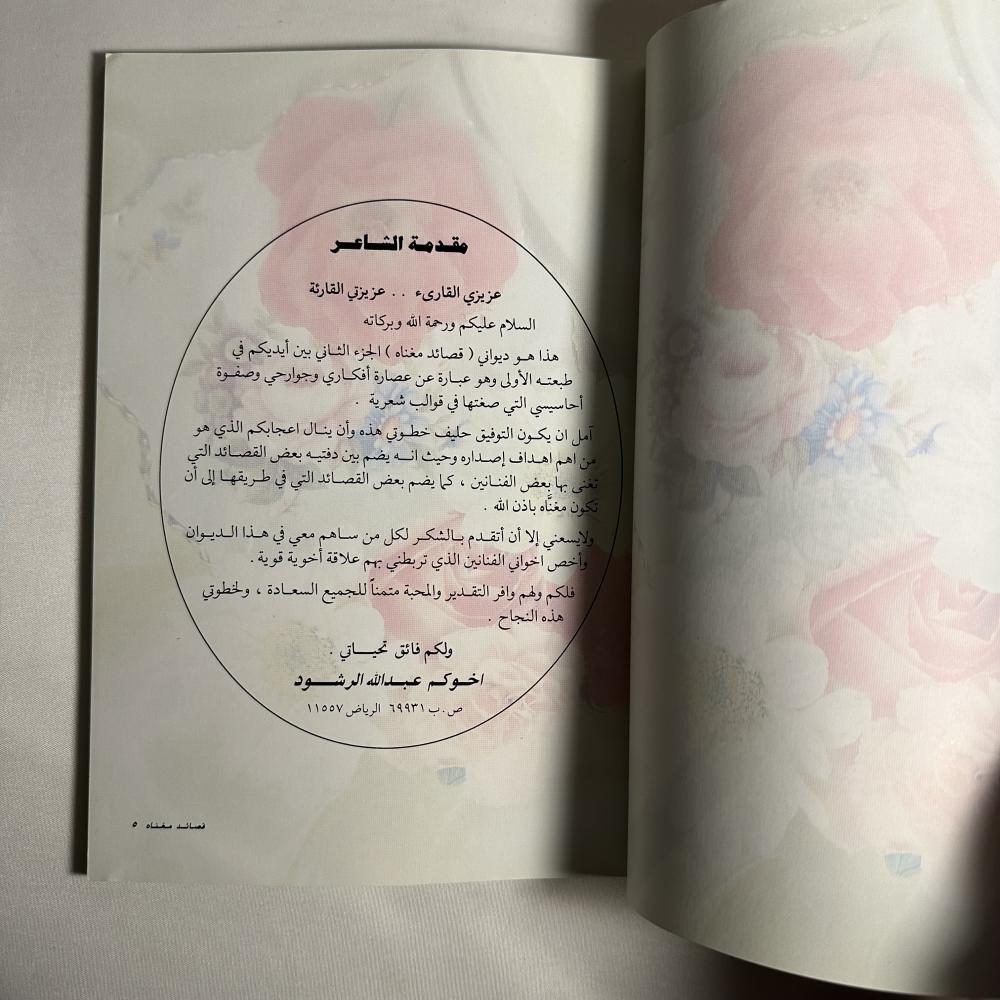 مقدمة الشاعر
عزيزي القارىء . . عزيزتي القارئة
السلام عليكم ورحمة الله وبركاته
هذا هو ديواني ( قصائد مغناه ) الجزء الثاني بين أيديكم في
طبعته الأولى وهو عبارة عن عصارة أفكاري وجوارحي وصفوة
أحاسيسي التي صغتها في قوالب شعرية .
آمل ان يكون التوفيق حليف خطوتي هذه وأن ينال اعجابكم الذي هو
من اهم اهداف إصداره وحيث انه يضم بين دفتيه بعض القصائد التي
تغنى بها بعض الفنانين ، كما يضم بعض القصائد التي في طريقها إلى أن
تكون مغنَّاه باذن الله .
ولايسعني إلا أن أتقدم بالشكر لكل من ساهم معي في هذا الديوان
وأخص اخواني الفنانين الذي تربطني بهم علاقة أخوية قوية .
فلكم ولهم وافر التقدير والمحبة متمناً للجميع السعادة ، ولخطوتي
هذه النجاح .
ولكم فائق تحياتي .
اخوكم عبدالله الرشود
ص.ب ٦٩٩٣١ الرياض ١١٥٥٧
قصائد مغناه ٥